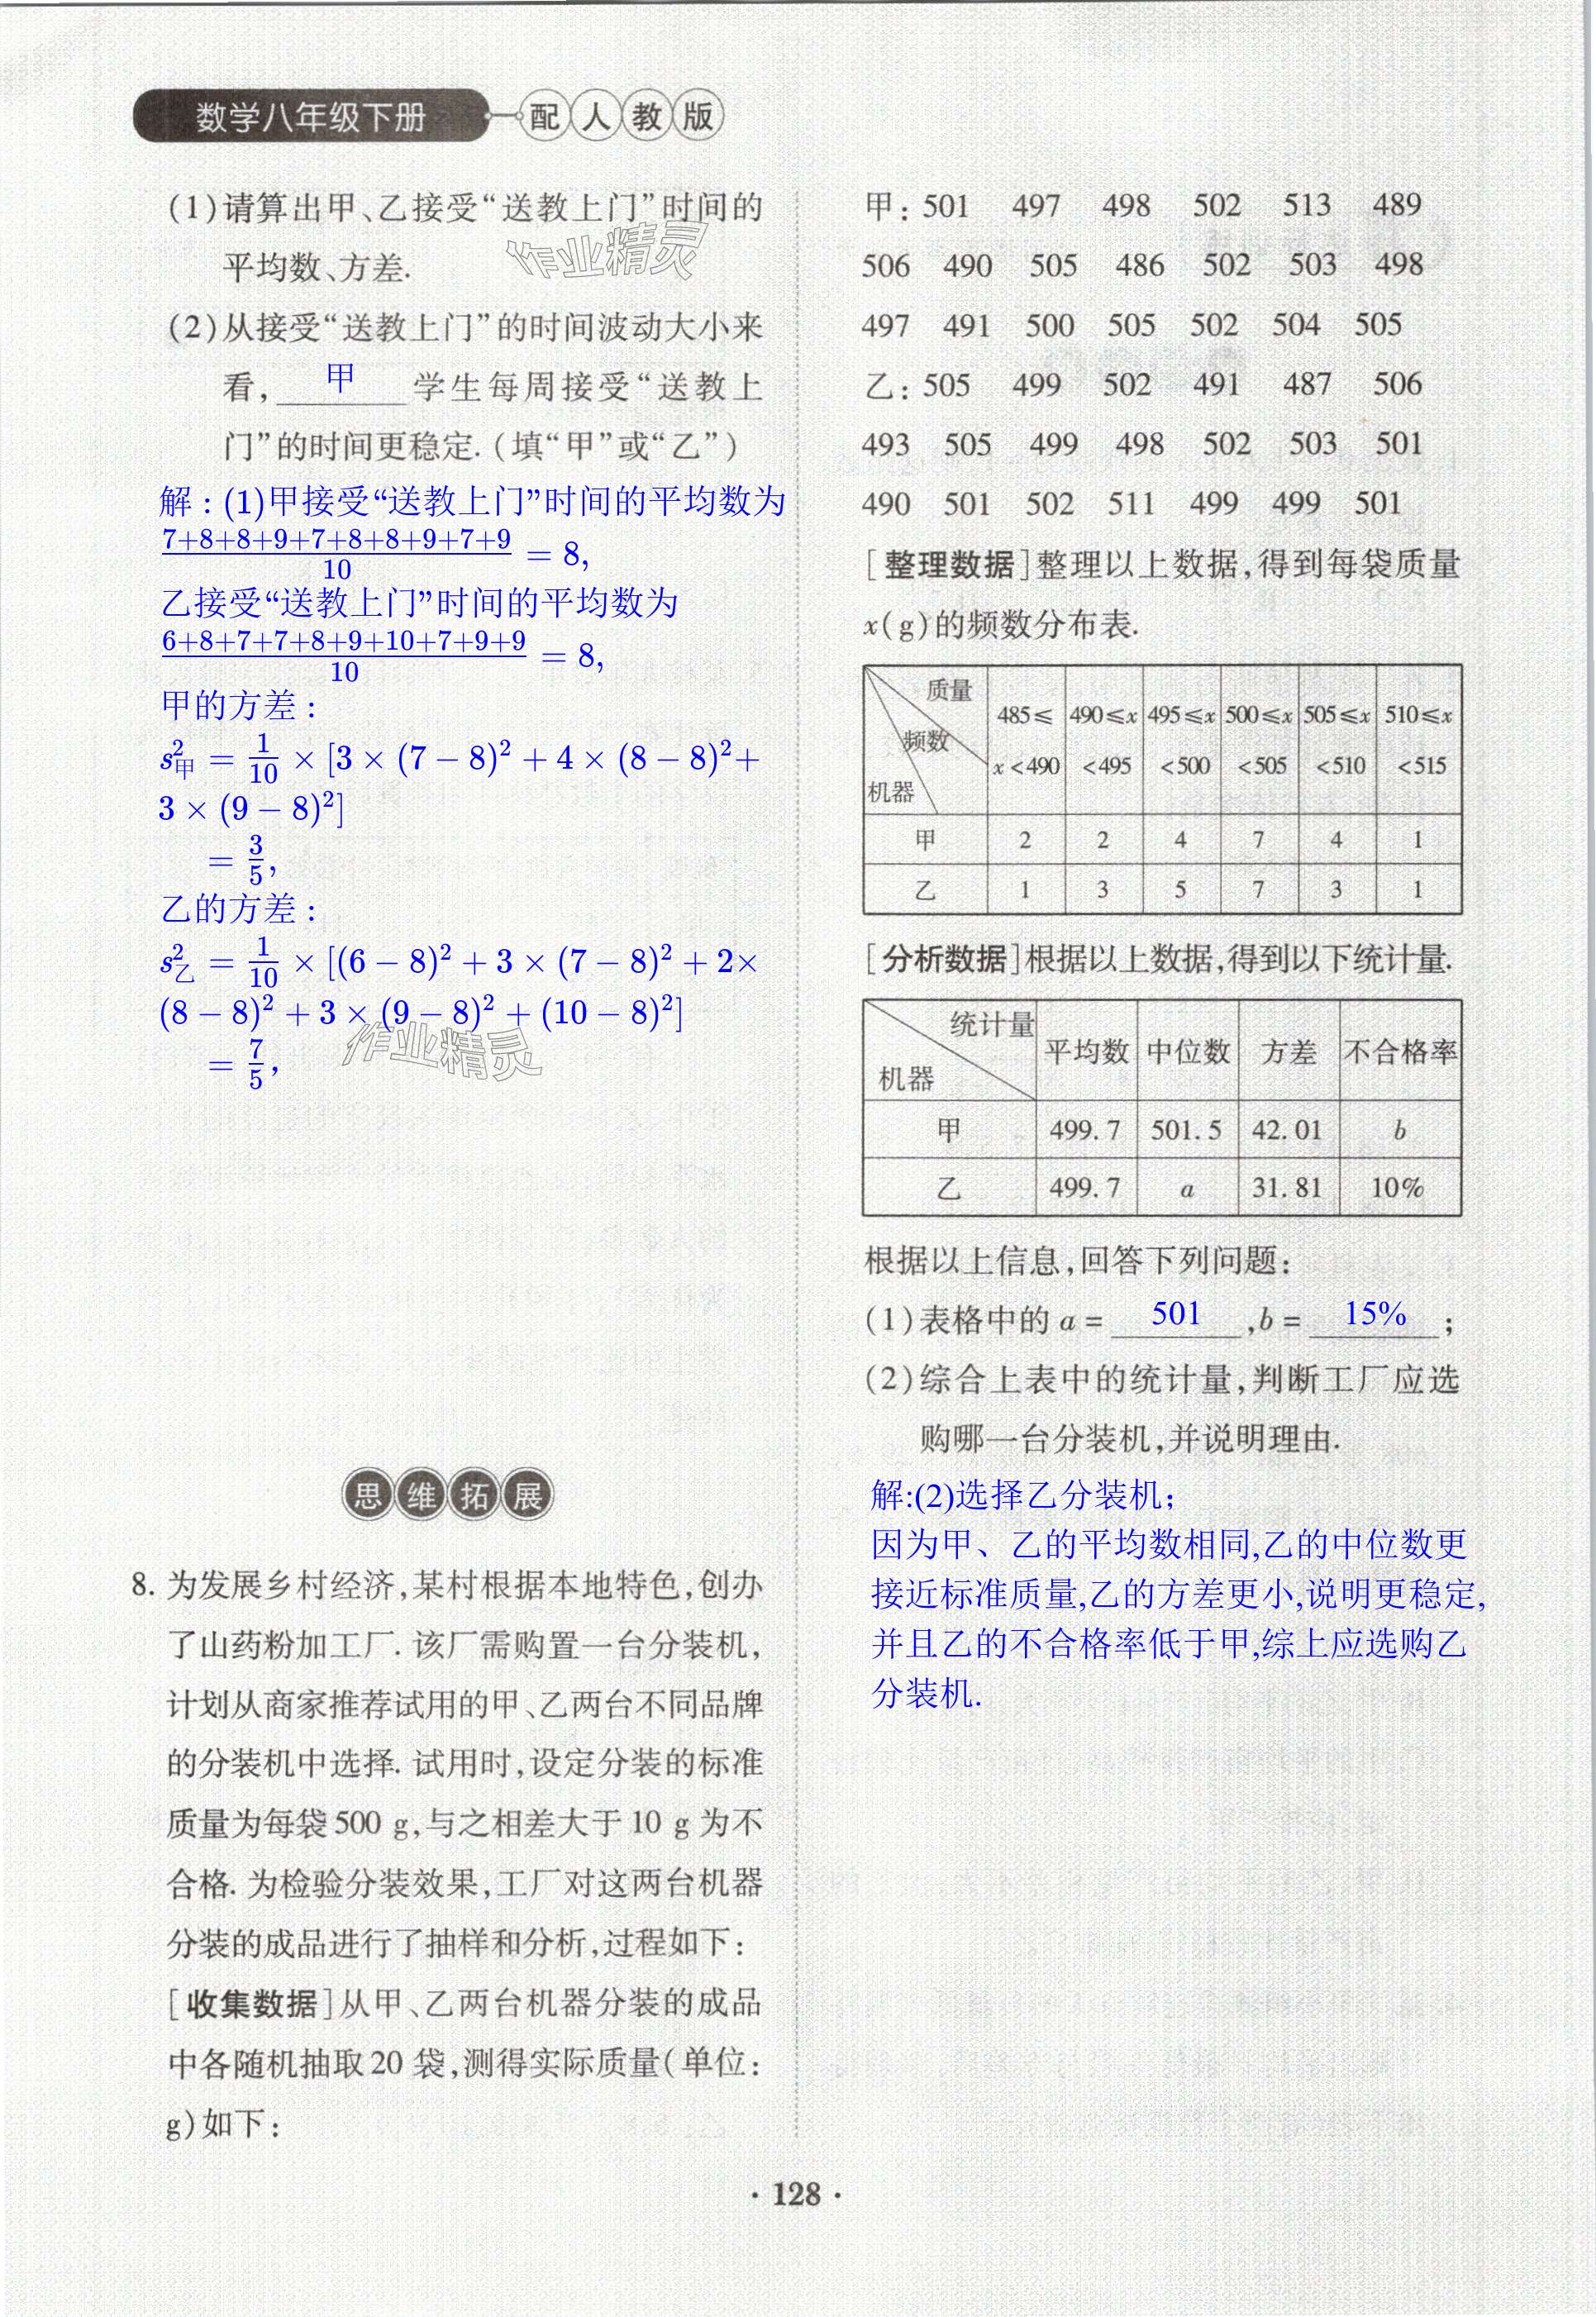 数学八年级下册 配人教版
(1)请算出甲、乙接受“送教上门”时间的
平均数、方差.
作业精灵
(2)从接受“送教上门”的时间波动大小来
看, 甲 学生每周接受“送教上
门”的时间更稳定.(填“甲”或“乙”)
解：(1)甲接受“送教上门”时间的平均数为
\frac{7+8+8+9+7+8+8+9+7+9}{10} = 8,
乙接受“送教上门”时间的平均数为
\frac{6+8+7+7+8+9+10+7+9+9}{10} = 8,
甲的方差：
s²甲 = \frac{1}{10} × [3 × (7 − 8)² + 4 × (8 − 8)²+
3 × (9 − 8)²]
= \frac{3}{5},
乙的方差：
s²乙 = \frac{1}{10} × [(6 − 8)² + 3 × (7 − 8)² + 2×
(8 − 8)² + 3 × (9 − 8)² + (10 − 8)²]
= \frac{7}{5},
作业精灵
思维拓展
8. 为发展乡村经济,某村根据本地特色,创办
了山药粉加工厂. 该厂需购置一台分装机,
计划从商家推荐试用的甲、乙两台不同品牌
的分装机中选择. 试用时,设定分装的标准
质量为每袋 500 g,与之相差大于 10 g 为不
合格. 为检验分装效果,工厂对这两台机器
分装的成品进行了抽样和分析,过程如下:
[收集数据]从甲、乙两台机器分装的成品
中各随机抽取 20 袋,测得实际质量(单位:
g)如下:
甲: 501 497 498 502 513 489
506 490 505 486 502 503 498
497 491 500 505 502 504 505
乙: 505 499 502 491 487 506
493 505 499 498 502 503 501
490 501 502 511 499 499 501
[整理数据]整理以上数据,得到每袋质量
x(g)的频数分布表.
质量 频数 机器 485≤x<490 490≤x<495 495≤x<500 500≤x<505 505≤x<510 510≤x<515
甲 2 2 4 7 4 1
乙 1 3 5 7 3 1
[分析数据]根据以上数据,得到以下统计量.
统计量 机器 平均数 中位数 方差 不合格率
甲 499.7 501.5 42.01 b
乙 499.7 a 31.81 10%
根据以上信息,回答下列问题:
(1)表格中的 a = 501 ,b = 15% ;
(2)综合上表中的统计量,判断工厂应选
购哪一台分装机,并说明理由.
解:(2)选择乙分装机；
因为甲、乙的平均数相同,乙的中位数更
接近标准质量,乙的方差更小,说明更稳定,
并且乙的不合格率低于甲,综上应选购乙
分装机.
· 128 ·